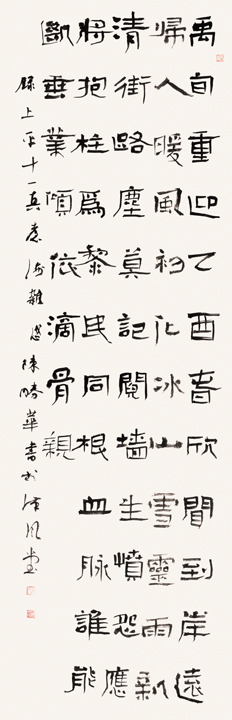 禹甸重迎乙酉春欣聞到岸遠
歸人暖風初化冰山雪靈雨新
清街路塵莫記鬩墻生憤怨應
將抱柱為黎民同根血脈誰能
斷垂業傾依滴骨親
錄上平十一真 雜感陳勝華書於風堂